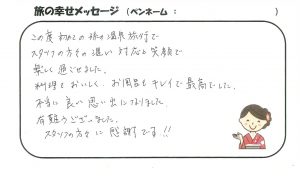 旅の幸せメッセージ (ペンネーム : )
この度 初めての 孫の温泉旅行で
スタッフの方々の 温い 対応と笑顔で
楽しく 過ごせました。
料理も おいしく、お風呂も キレイで 最高でした。
本当に 良い 思い 出になりました
有難うございました。
スタッフの方々に 感謝です!!